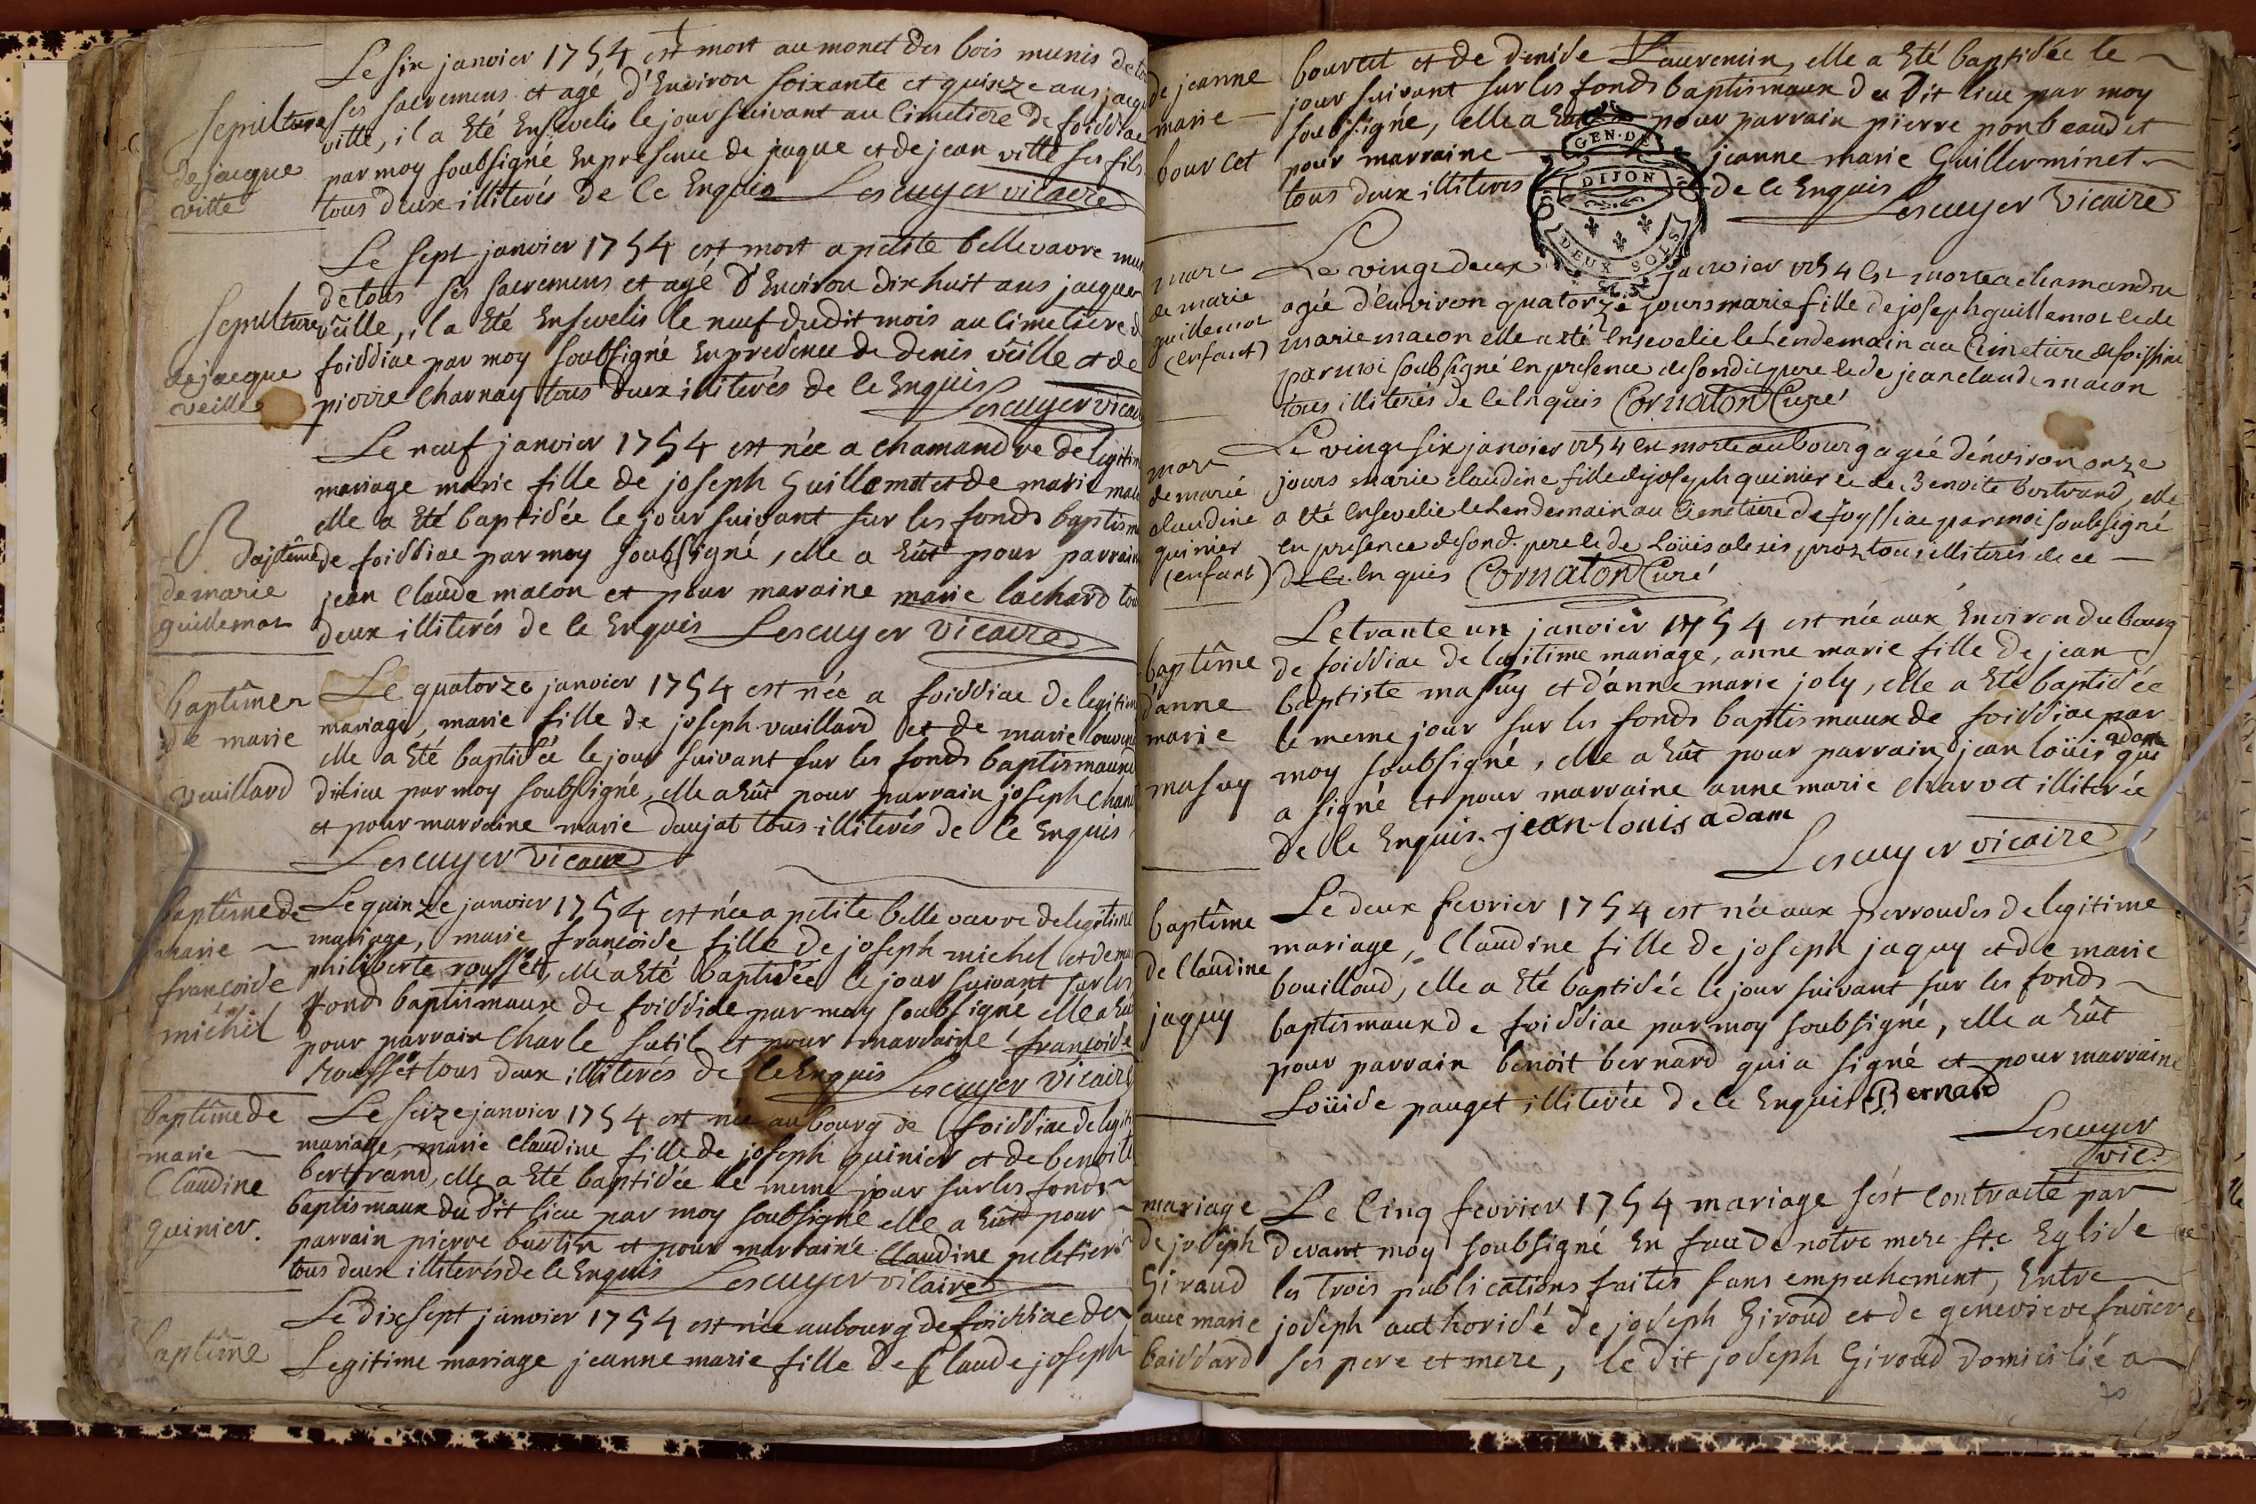 Le six janvier 1754 est mort au monet des bois munis de tou
sepulture
ses sacremens et agé d'Environ soixante et quinze ans jacque
ville, il a Eté Ensevelis le jour suivant au Cimetiere de foissiac
de jacque
par moy soubsigné En presence de jaque et de jean ville ses fils
ville
tous deux illiterés de ce Enquis Lescuyer vicaire
Le sept janvier 1754 est mort a petite bellevavre mun
de tous ses sacremens et agé d'Environ dix huit ans jacque
sepulture
veille, il a Eté Ensevelis le neuf dudit mois au Cimetiere d
foissiac par moy soubsigné En presence de denis veille et de
de jacque
veille
pierre Charnay tous deux illiterés de ce Enquis Lescuyer vicai
Le neuf janvier 1754 est née a chamandre de legitim
mariage marie fille de joseph Guillemot et de marie mac
elle a Eté baptisée le jour suivant sur les fonds baptism
Baptême
de foissiac par moy soubsigné, elle a Eût pour parrain
de marie
jean Claude macon et pour maraine marie lachard tou
guillemot
deux illiterés de ce Enquis Lescuyer Vicaire
baptême
Le quatorze janvier 1754 est née a foissiac de legitim
de marie
mariage, marie fille de joseph vuillard et de marie
elle a Eté baptisée le jour suivant sur les fonds baptismaux d
vuillard
dit lieu par moy soubsigné, elle a Eût pour parrain joseph Chan
et pour marraine marie daujat tous illiterés de ce Enquis
Lescuyer vicaire
baptême de
Le quinze janvier 1754 est née a petite bellevavre de legitime
marie
mariage, marie francoise fille de joseph michel et de ma
francoise
philiberte rousset, elle a Eté baptisée le jour suivant sur les
fonds baptismaux de foissiac par moy soubsigné elle a Eût
michel
pour parrain Charle sutil et pour marraine francoise
Rousset tous deux illiterés de ce Enquis Lescuyer Vicaire
baptême de
Le seize janvier 1754 est née au bourg de foissiac de legiti
marie
mariage, marie Claudine fille de joseph quinier et de benoite
Claudine
bertrand, elle a Eté baptisée le meme jour sur les fonds
baptismaux du dit lieu par moy soubsigné elle a Eût pour
quinier.
parrain pierre burtin et pour marraine Claudine peletier
tous deux illiterés de ce Enquis Lescuyer vicaire
Le dix sept janvier 1754 est née au bourg de foissiac de
baptême
Legitime mariage jeanne marie fille de Claude joseph
de jeanne
bourcet et de denise Laurencin, elle a Eté baptisée le
marie
jour suivant sur les fonds baptismaux du Dit lieu par moy
soubsigné, elle a Eût pour parrain pierre ponbeaud et
bourcet
pour marraine jeanne marie Guillerminet
tous deux illiterés de ce Enquis
Lescuyer Vicaire
GEN. DE
DIJON
DEUX SOLS
mort
Le vingt deux janvier 1754 est morte a chamandre
de marie
agée d'environ quatorze jours marie fille de joseph guillemot et de
guillemot
(enfant)
marie macon elle a eté ensevelie le Lendemain au Cimetiere de foissiac
par moi soubsigné en presence de son dit pere et de jean claude macon
tous illiterés de ce Enquis Cornaton Curé
mort
Le vingt six janvier 1754 est morte au bourg agée d'environ onze
de marie
jours marie claudine fille de joseph quinier et de Benoite bertrand, elle
claudine
a eté ensevelie le Lendemain au Cimetiere de foyssiac par moi soubsigné
quinier
en presence de son d. pere et de Loüis alexis proz tous illiterés de ce
(enfant)
de ce Enquis Cornaton Curé
Le trante un janvier 1754 est née aux Environ du bourg
baptême
de foissiac de legitime mariage, anne marie fille de jean
d'anne
baptiste masuy et d'anne marie joly, elle a Eté baptisée
marie
le meme jour sur les fonds baptismaux de foissiac par
masuy
moy soubsigné, elle a Eût pour parrain jean loüis adam qui
a signé et pour marraine anne marie Charvet illiterée
de ce Enquis. jean-louis adam
Lescuyer vicaire
Le deux fevrier 1754 est née aux perrouses de legitime
baptême
mariage, Claudine fille de joseph jaquy et de marie
de Claudine
bouilloud, elle a Eté baptisée le jour suivant sur les fonds
jaquy
baptismaux de foissiac par moy soubsigné, elle a Eût
pour parrain benoit bernard qui a signé et pour marraine
Loüise pauget illiterée de ce Enquis B. Bernard
Lescuyer
vic.
mariage
Le Cinq fevrier 1754 mariage s'est Contracté par
de joseph
devant moy soubsigné En face de notre mere Ste Eglise
Giraud
les trois publications faites sans empechement, Entre
avec marie
joseph authorisé de joseph Giroud et de genevieve favier
baissard
ses pere et mere, le dit joseph Giroud domicilié a